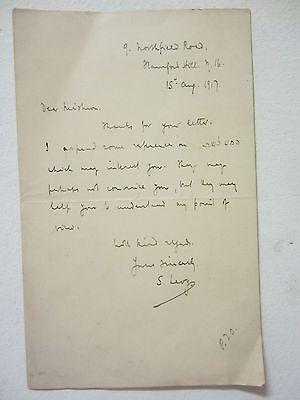 9. Northfield Road,
Stamford Hill. N. 16.
15th Aug. 1917.
Dear
Thanks for your letter.
I append some references on
which may interest you. They may
perhaps not convince you, but they may
help you to understand my point of
view.
With kind regards.
Yours Sincerely.
S. Levy
P.T.O.